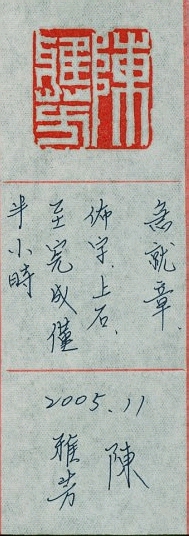 陳
雅芳
急就章.
佈字.上石.
至完成僅
半小時
2005.11
陳
雅芳